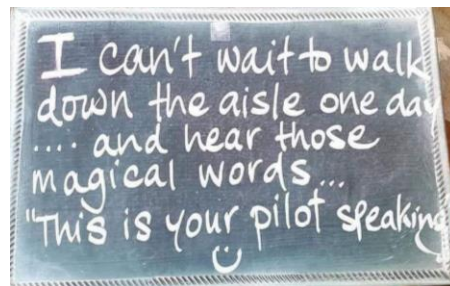 I can't wait to walk
down the aisle one day
.... and hear those
magical words...
"This is your pilot speaking